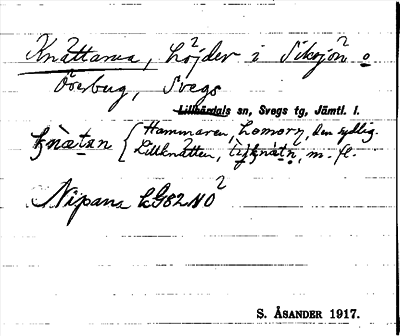 Knättarna, höjder i Siksjön o
Överbyg, Svegs
Lillhärdals sn, Svegs tg, Jämtl. l.
Hammaren, Lomorn, den sydlig.
Littknätten, m. fl.
Nipans LG82NO2
S. ÅSANDER 1917.